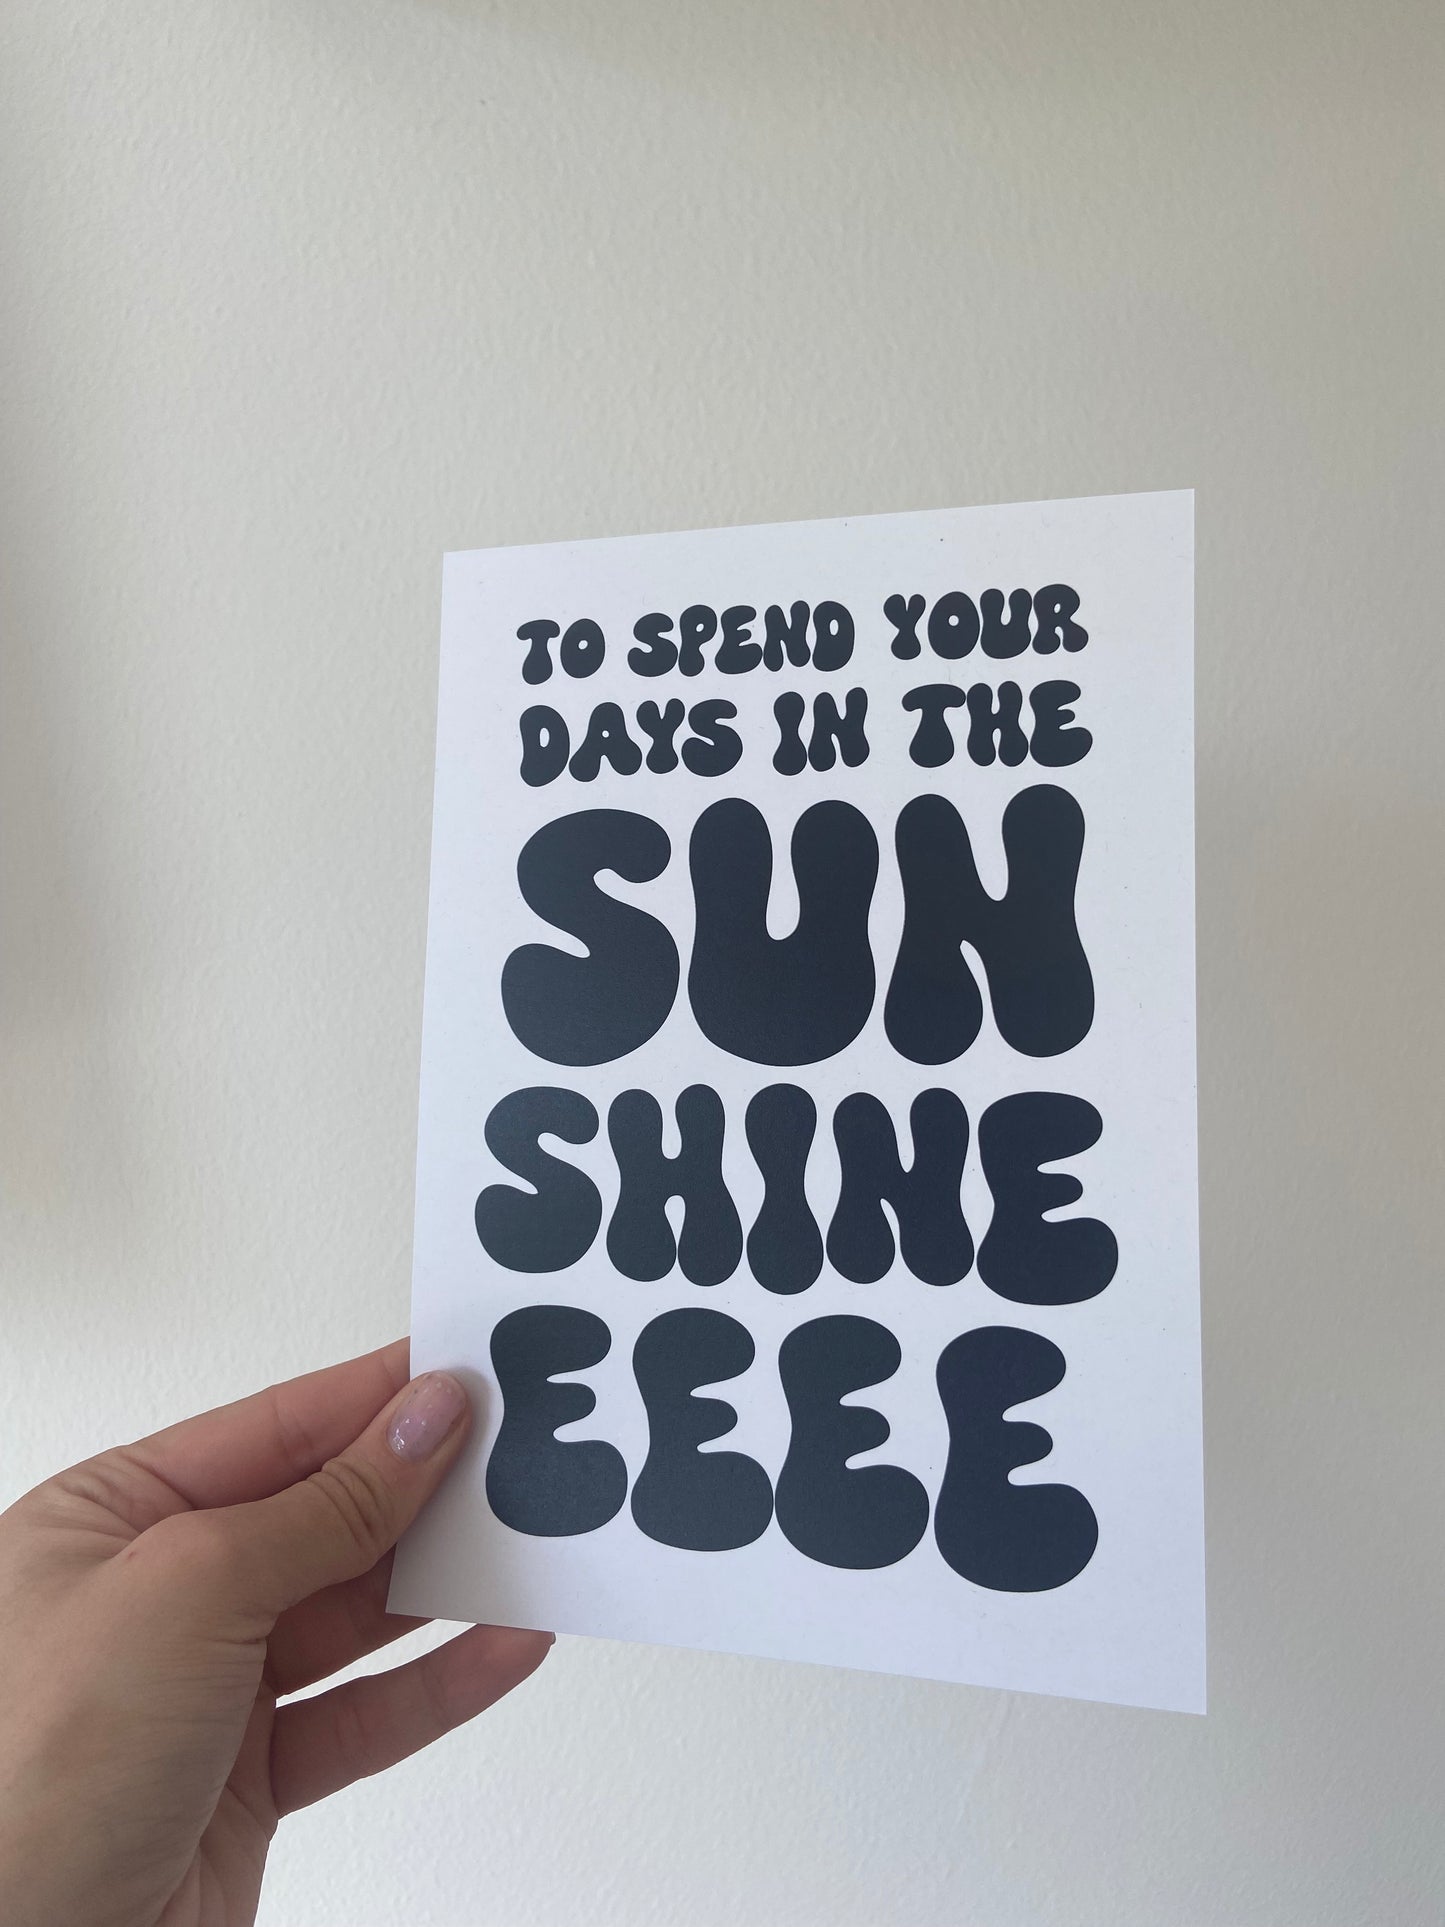 TO SPEND YOUR
DAYS IN THE
SUN
SHINE
EEEE